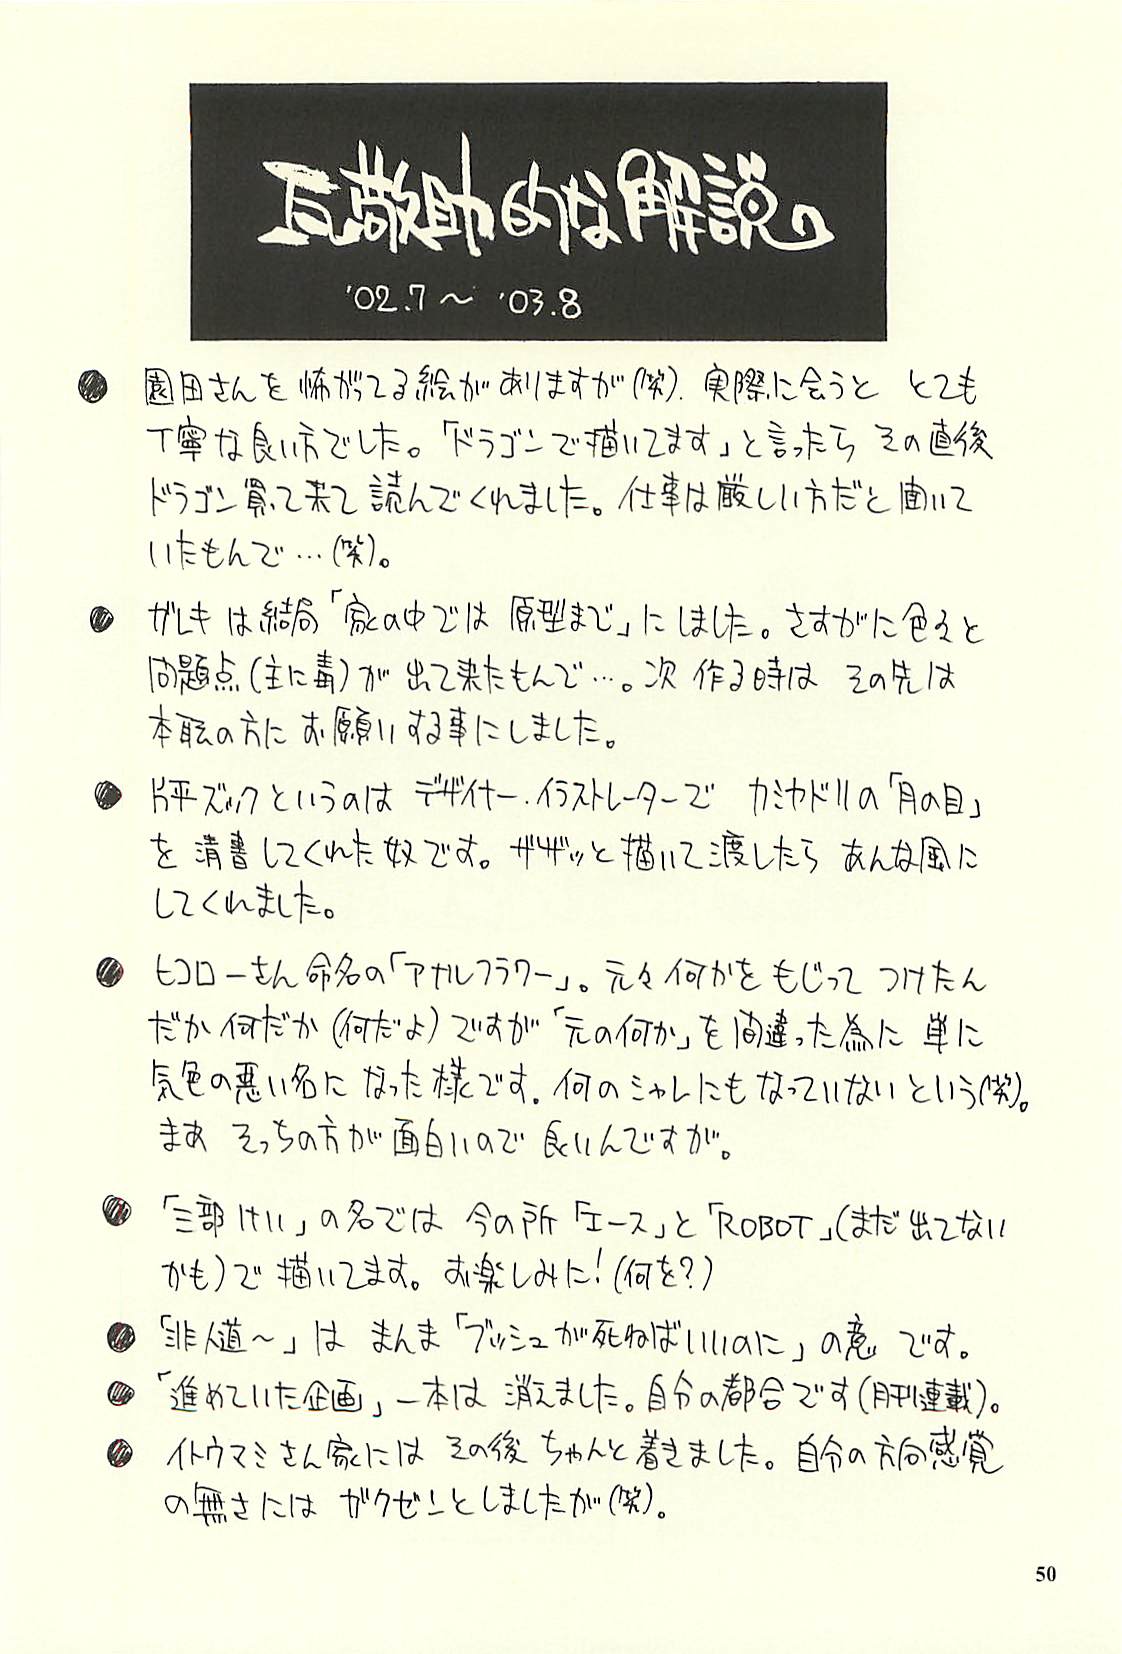 瓦敬助的な解説。
'02.7～'03.8
● 園田さんを怖がってる絵がありますが(笑)．実際に会うと とても
丁寧な良い方でした。「ドラゴンで描いてます」と言ったら その直後
ドラゴン買って来て読んでくれました。仕事は厳しい方だと聞いて
いたもんで…(笑)。
● ガレキは結局「家の中では 原型まで」にしました。さすがに色々と
問題点(主に毒)が 出て来たもんで…。次 作る時は その先は
本職の方に お願いする事にしました。
● 片平ズックというのは デザイナー・イラストレーターで カミヤドリの「月の目」
を 清書してくれた奴です。ザザッと描いて渡したら あんな風に
してくれました。
● ヒコローさん命名の「アカルフラワー」。元々何かを もじって つけたん
だか何だか(何だよ)ですが「元の何か」を間違った為に 単に
気色の悪い名に なった様です．何のシャレにもなっていないという(笑)。
まあ そっちの方が面白いので 良いんですが。
● 「三部けい」の名では 今の所「エース」と「ROBOT」(まだ出てない
かも)で描いてます。お楽しみに！(何を？)
● 「非人道～」は まんま「ブッシュが死ねばいいのに」の意 です。
● 「進めていた企画」一本は 消えました。自分の都合です(月刊連載)。
● イトウマミさん家には その後 ちゃんと着きました。自分の方向感覚
の無さには ガクゼンとしましたが(笑)。
50